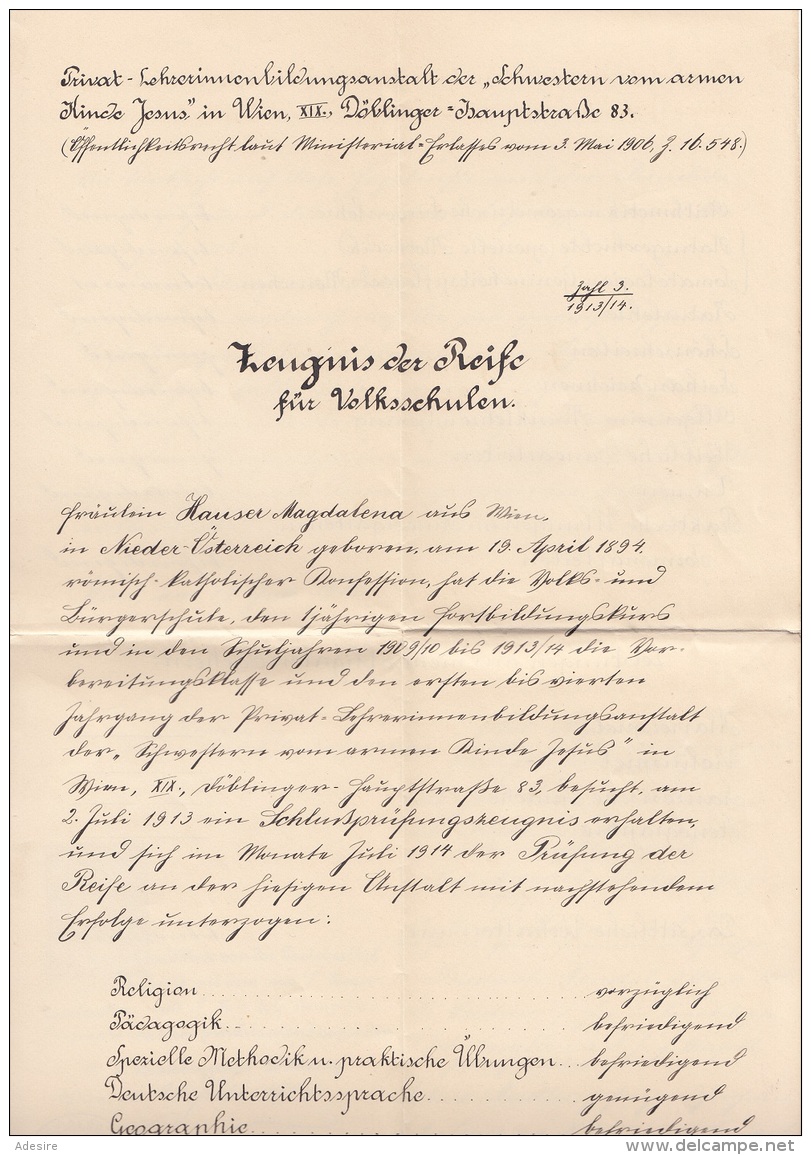 Privat-Lehrerinnenbildungsanstalt der „Schwestern vom armen
Kinde Jesus" in Wien, XIX., Döblinger=Hauptstraße 83.
(Öffentlichkeitsrecht laut Ministerial=Erlasses vom 3. Mai 1906, Z. 16.548.)
Zahl 3.
1913/14.
Zeugnis der Reife
für Volksschulen.
Fräulein Häuser Magdalena aus Wien,
in Nieder-Österreich geboren, am 19. April 1894,
römisch-katholischer Konfession, hat die Volks- und
Bürgerschule, den 1jährigen Fortbildungskurs
und in den Schuljahren 1909/10 bis 1913/14 die Vor-
bereitungsklasse und den ersten bis vierten
Jahrgang der Privat=Lehrerinnenbildungsanstalt
der „Schwestern vom armen Kinde Jesus" in
Wien, XIX., Döblinger-Hauptstraße 83, besucht, am
2. Juli 1913 ein Schlußprüfungszeugnis erhalten,
und sich im Monate Juli 1914 der Prüfung der
Reife an der hiesigen Anstalt mit nachstehendem
Erfolge unterzogen:
Religion .................... vorzüglich
Pädagogik .................... befriedigend
Spezielle Methodik u. praktische Übungen ... befriedigend
Deutsche Unterrichtssprache .......... genügend
Geographie .................... befriedigend
Adesire
delcampe.net